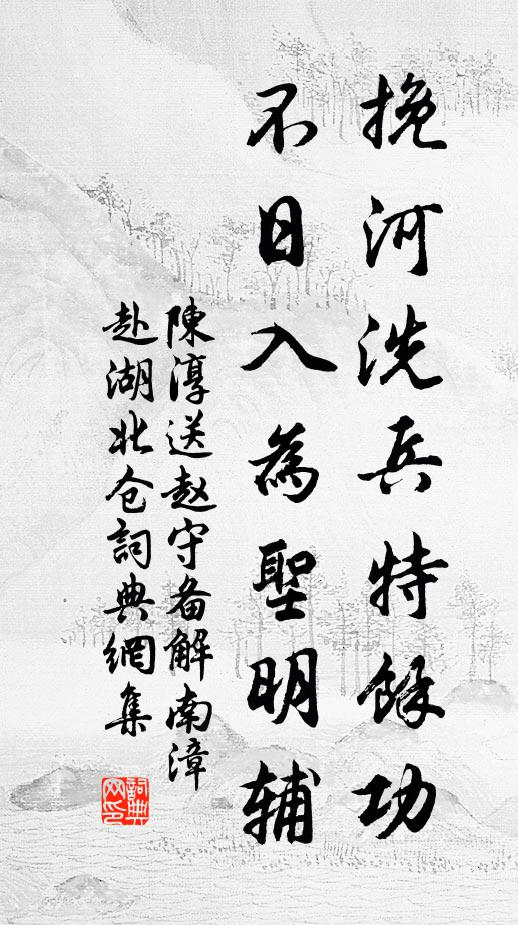 挽河洗兵特餘功
不日入為聖明辅
陳淳送赵守备解南漳
赴湖北仓詞典網集
詞典
网印